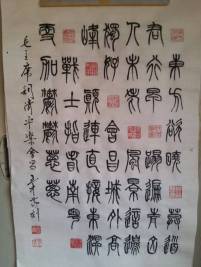 東方欲曉莫道
君行早踏遍青山
人未老風景這邊
獨好會昌城外高
峰顛連直接東溟
戰士指看南粵
更加鬱鬱蔥蔥
毛主席詞清平樂會昌